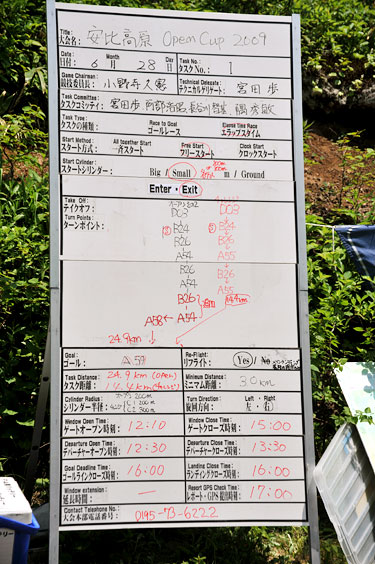 Title:
大会名: 安比高原 Open Cup 2009
Date: Month Day
日付: 6月 28日
Task No.:
タスクNo.: 1
Game Chairman:
競技委員長: 小野寺久憲
Technical Delegate:
テクニカルデリゲート: 宮田 歩
Task Committee:
タスクコミッティ: 宮田歩
Task Type:
タスクの種類:
Race to Goal
ゴールレース
Elapse Time Race
エラップスタイム
Start Method:
スタート方式:
All together Start
一斉スタート
Free Start
フリースタート
Clock Start
クロックスタート
Start Cylinder:
スタートシリンダー:
Big / Small / m / Ground
Enter・Exit
Take Off:
テイクオフ:
Turn Points:
ターンポイント:
D03 D03
② B24 ② B24
B26 B26
A54 A55
B26 B26
A54 A55
B26
A58 ← A54
24.9km
Goal:
ゴール: A59
Re-Flight:
リフライト: Yes / No
Task Distance:
タスク距離: 24.9 km (open)
14.4 km
Minimum Distance:
ミニマム距離: 3.0 km
Cylinder Radius:
シリンダー半径:
200m
Turn Direction:
旋回方向:
Left・Right
左・右
Window Open Time:
ゲートオープン時刻: 12:10
Window Close Time:
ゲートクローズ時刻: 15:00
Departure Open Time:
デパーチャーオープン時刻: 12:30
Departure Close Time:
デパーチャークローズ時刻: 13:30
Goal Deadline Time:
ゴールラインクローズ時刻: 16:00
Landing Close Time:
ランディングクローズ時刻: 16:00
Window extension:
延長時間: —
Report GPS Check Time:
レポート・GPS提出時刻: 17:00
Contact Telephone No.:
大会本部電話番号: 0195-73-6222